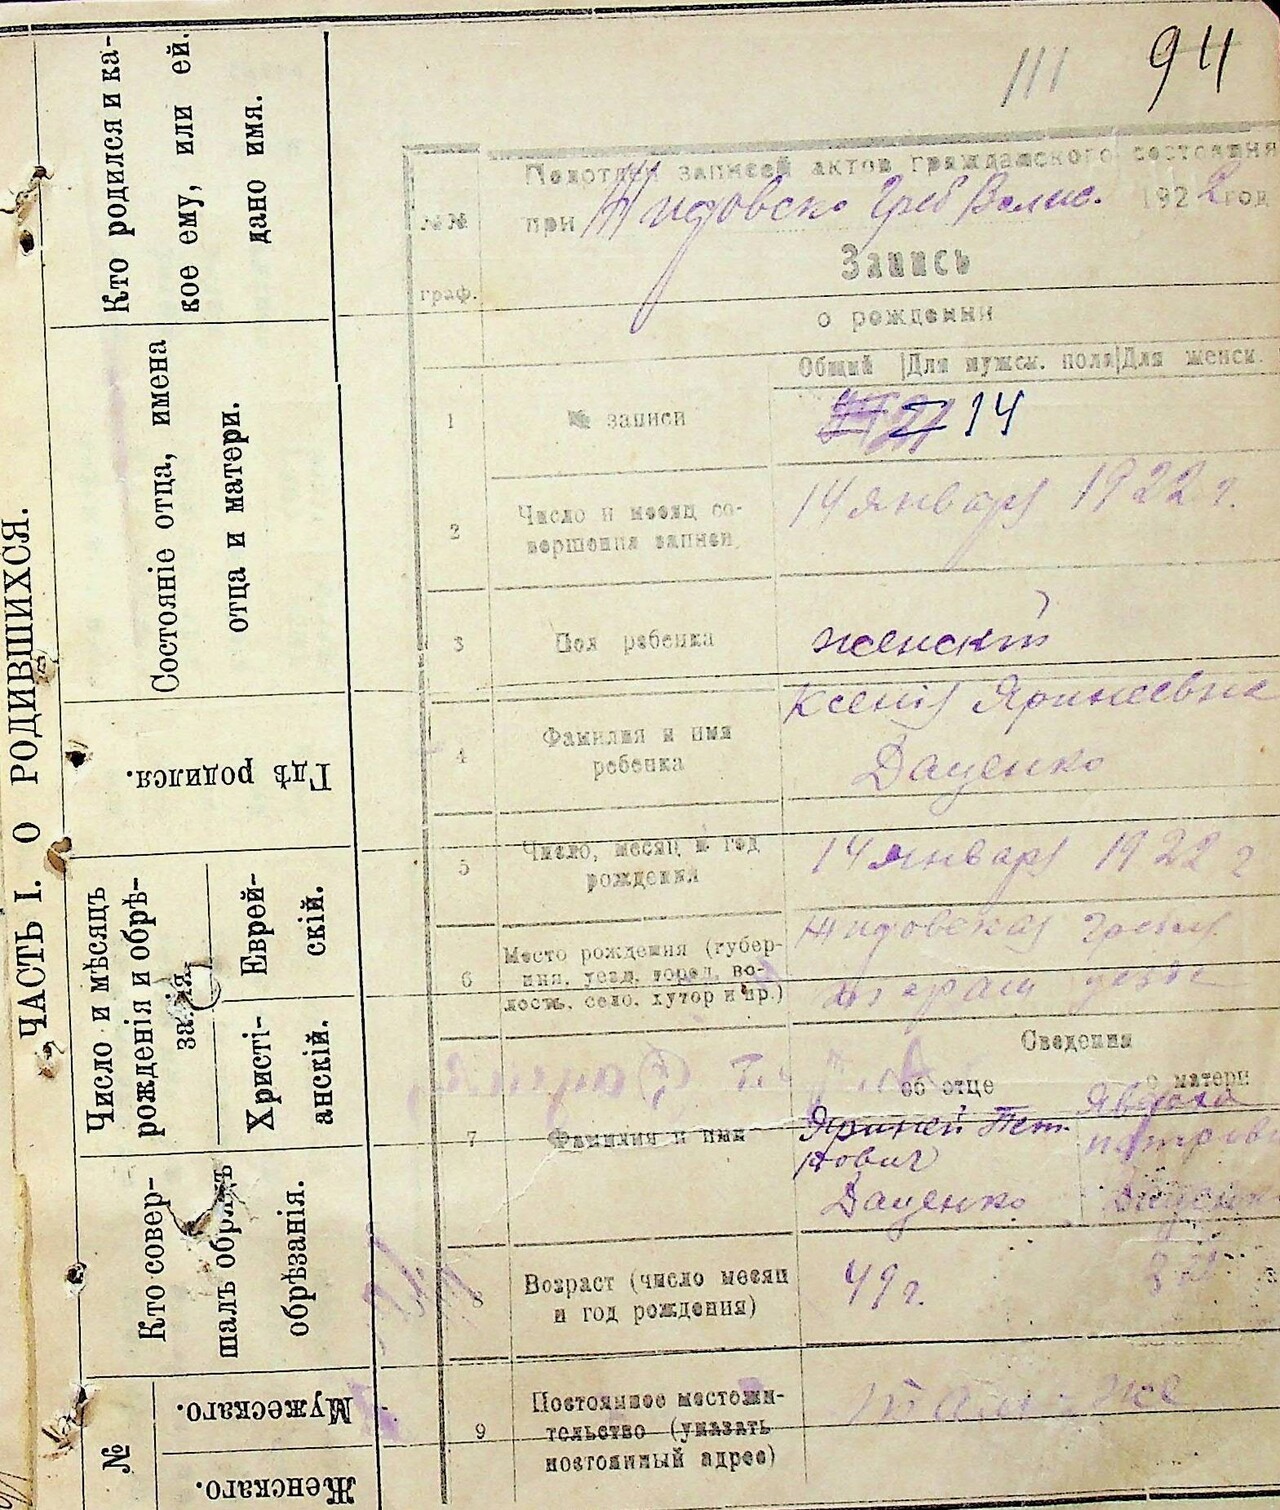 94
111
ЧАСТЬ I. О РОДИВШИХСЯ.
Кто родился и ка-
кое ему, или ей.
дано имя.
Состоянiе отца, имена
отца и матери.
Гдѣ родился.
Число и мѣсяцъ
рожденiя и обрѣ-
занiя.
Еврей-
скiй.
Христi-
анскiй.
Кто совер-
шалъ обрядъ
обрѣзанiя.
№
Мужескаго.
Женскаго.
№№
граф.
Подотдел записей актов гражданского состояния
при Жидовско Греб Волис. 1922 год
Запись
о рождении
Общий Для мужск. пола Для женск.
1 № записи 14
2 Число и месяц со-
вершения записи
14 январ 1922 г.
3 Пол ребенка женский
4 Фамилия и имя
ребенка
Ксенія Яринеевна
Даценко
5 Число, месяц и год
рождения
14 январ 1922 г
6 Место рождения (губер-
ния, уезд, город, во-
лость, село, хутор и пр.)
Жидовская Гребл.
Сведения
об отце о матери
7 Фамилия и имя
Яриней Пет
рович
Даценко
Явдоха
петровн
Даценко
8 Возраст (число месяц
и год рождения)
49 г.
9 Постоянное местожи-
тельство (указать
постоянный адрес)
там-же